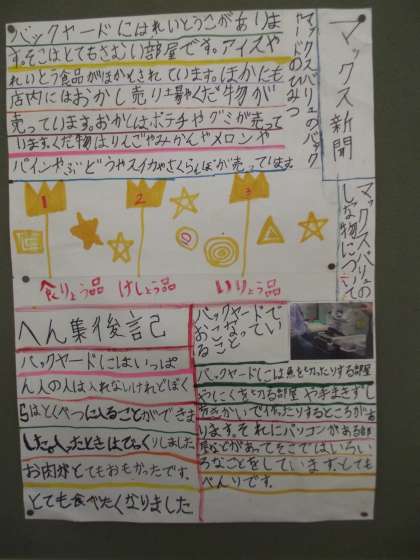 マックス新聞
マックスバリュのバック
ヤードのひみつ
バックヤードにはれいとうこがありま
す。そこはとてもさむい部屋です。アイスや
れいとう食品がほかんとされています。ほかにも
店内にはおかし売り場やくだ物が
売っています。おかしは、ポテチやグミが売って
います。くだ物はりんごやみかんやメロンや
パインやぶどうやスイカやさくらんぼが売っています
マックスバリュの
しな物について
1
2
3
食りょう品
けしょう品
いりょう品
バックヤードで
おこなってい
ること
バックヤードには魚を切ったりする部屋
やにくを切る部屋や手まきずし
きかいで作ったりするところがあ
ります。それにパソコンがある部
屋などがあってそこではいろい
ろなことをしています。とても
べんりです。
へん集後記
バックヤードにはいっぱ
ん人の人は入れないけれどぼく
らはとくべつに入ることができま
した。入ったときはびっくりしました
お肉がとてもおもかったです。
とても食べたくなりました